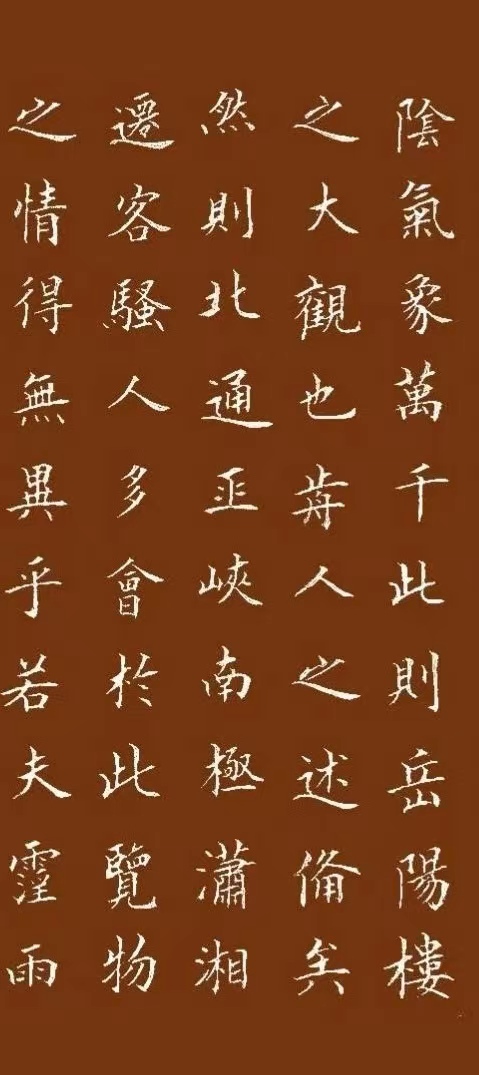 陰氣象萬千此則岳陽樓
之大觀也歬人之述備矣
然則北通巫峽南極瀟湘
遷客騷人多會於此覽物
之情得無異乎若夫霪雨